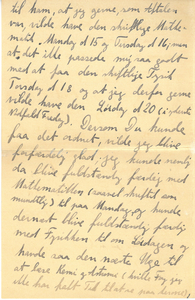 til ham, at jeg gerne, som Aftalen
var, vilde have den skriftlige Mathe-
matik Mandag d 15 og Tirsdag d 16, men
at det ikke passede mig saa godt
med at faa den skriftlige Fysik
Torsdag d 18 og at jeg derfor gerne
vilde have den Lørdag d 20 (i
). Dersom Du kunde
faa det ordnet, vilde jeg blive
forfærdelig glad; jeg kunde nemlig
da blive fuldstændig færdig med
Mathematiken (saavel skriftlig som
mundtlig) til paa Mandag, og kunde
dernæst blive fuldstændig færdig
med Fysiken til om Lørdagen og
havde saa den næste Uge til
at læse Kemi og Astronomi (hvilke Fag jeg
ikke har haft Tid til at se paa